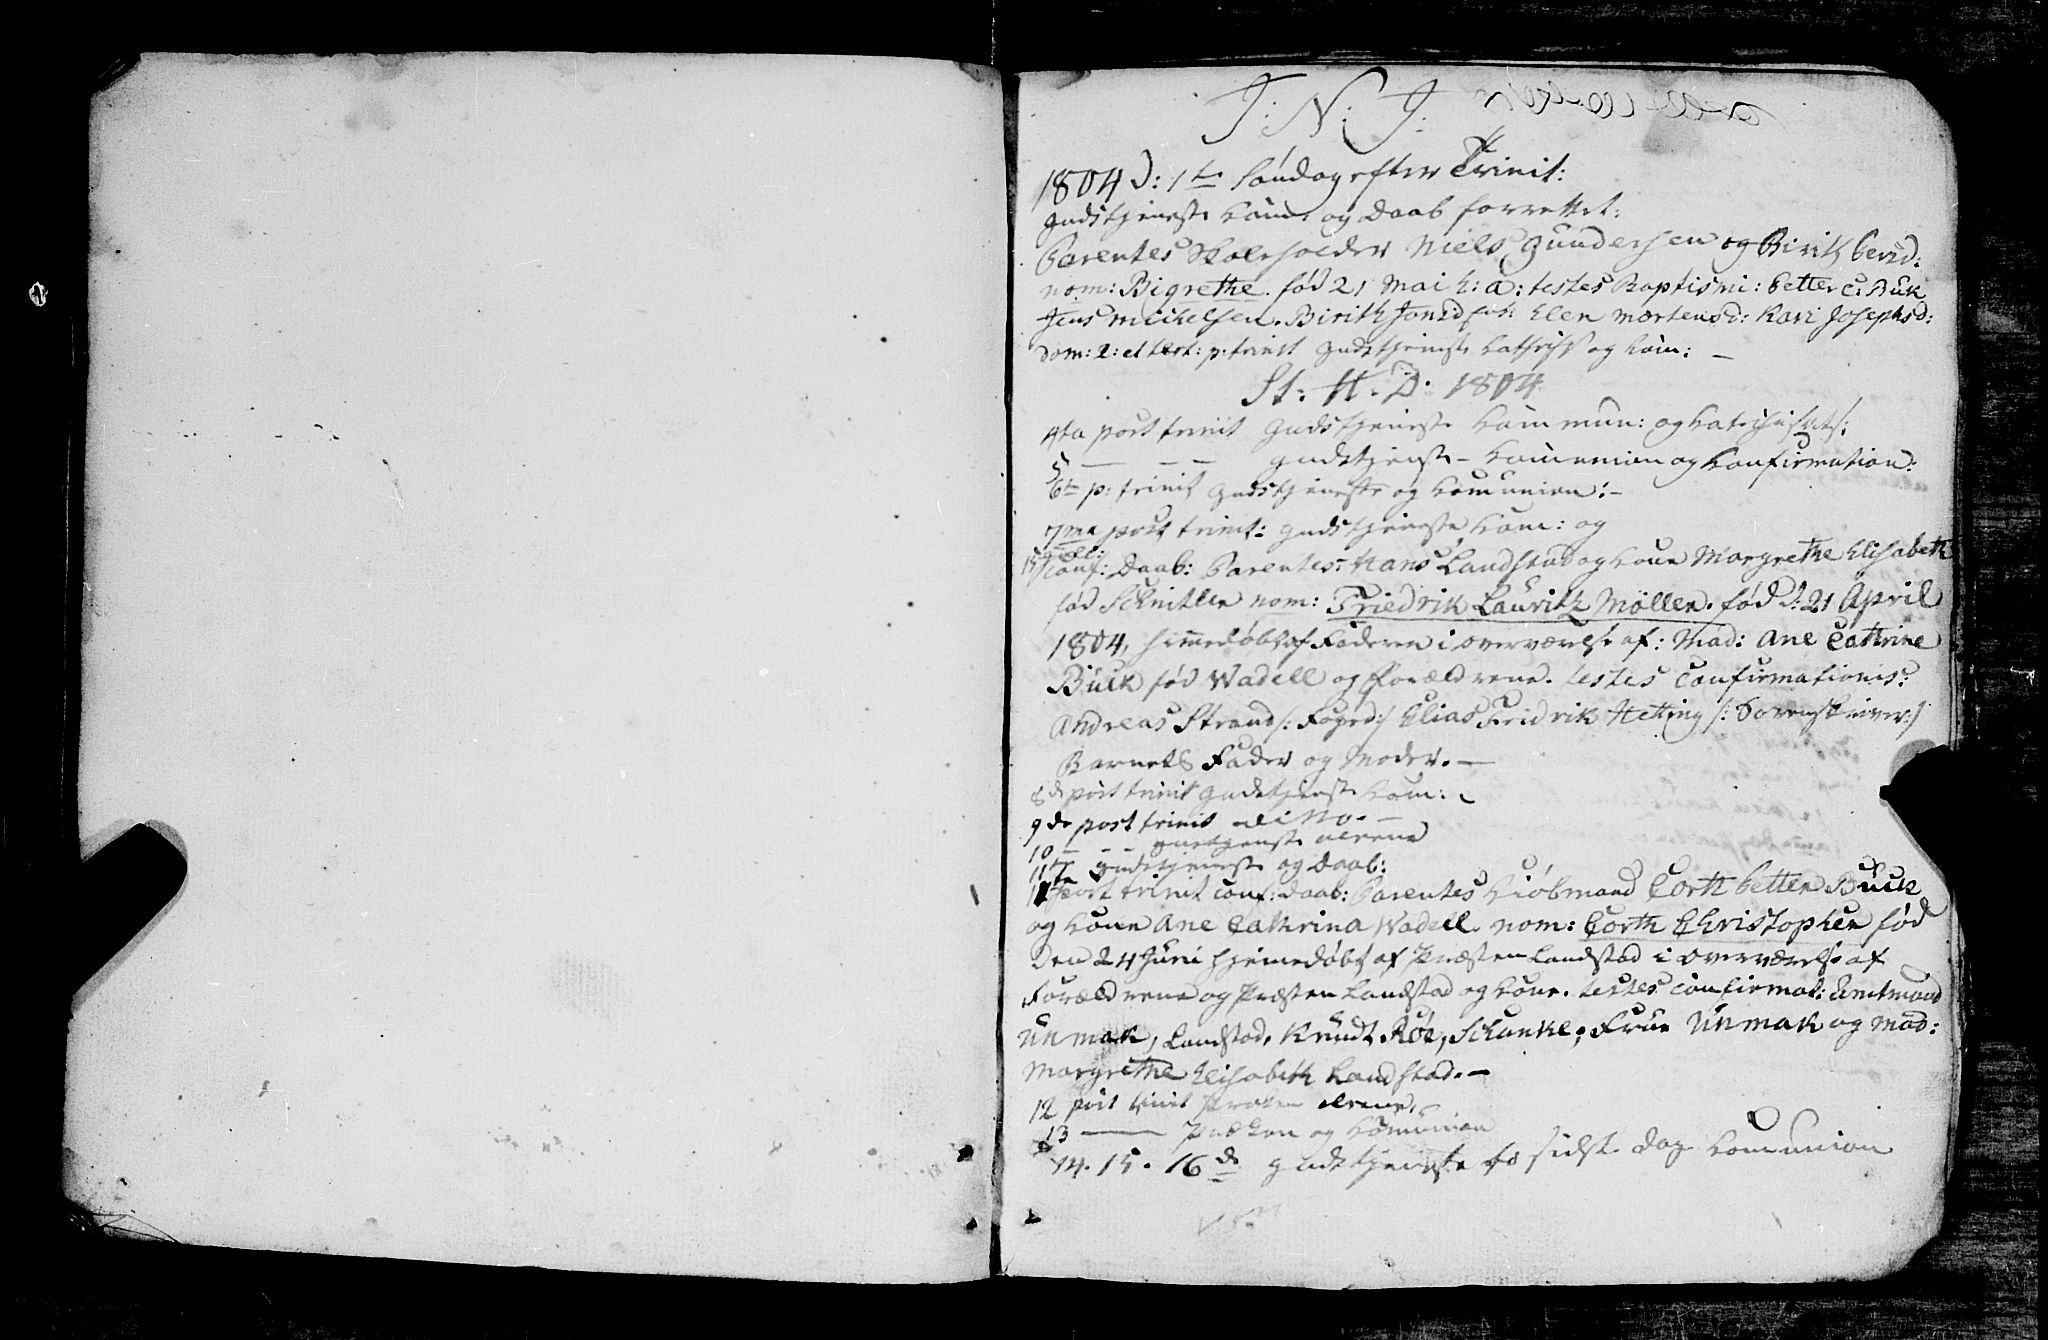 J: N: J:
1804 D: 1te Søndag efter Trinit:
Gudstjeneste Com: og Daab forrettet:
Parentes Skoleholder Niels Gundersen og Birith
nom: Bigrethe. fød 21 Mai h: a: testes Baptismi: Petter C: Buk
Jens Michelsen. Birith Jonsd Elen Mortensd: Kari Josephsd:
dom: 2: et tert: p: trinit Gudstjeneste og Com: —
St: H. D: 1804
4ta post trinit Gudstjeneste Commun: og Catechisat:
5 — — — Gudstjenste – Communion og Confirmation:
6te p: trinit Gudstjeneste og Communion: –
7ma post trinit: Gudstjeneste Com: og
Conf: Daab: Parentes: Hans Landstad og Kone Margrethe Elisabeth
fød Schnitler nom: Friedrik Lauritz Möller. fød d: 21 April
1804, hjemedøbt af Faderen i overværelse af: Mad: Ane Cathrine
Buck fød Wadell og Forældrene. testes Confirmationis:
Andreas Strand /: Foged:/ Elias Fridrik Hetting /: Sorenskriver:/
Barnets Fader og Moder. —
8de post trinit Gudstjenste Com: –
9de post trinit ditto. —
10 – – – Gudstjenste alene
11te Gudstjeneste og Daab:
11 post trinit Conf: Daab: Parentes Kiöbmand Corth Petter Buck
og Kone Ane Cathrina Wadell. nom: Corth Christopher fød
den 24 Juni hjemedøbt af Præsten Landstad i overværelse af
Forældrene og Præsten Landstad og Kone. testes Confirmat: Amtmand
Unmak, Landstad, Knudt Röe, Schanke, Frue Unmak og Mad:
Margrethe Elisabeth Landstad. —
12 post trinit Præken alene.
13 —— Præken og Communion
14. 15. 16de Gudstjeneste to sidste Dag Communion